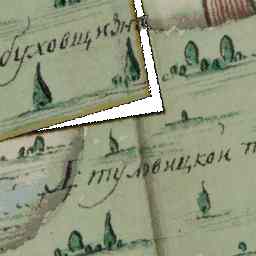 буховщизн
А туловицкои п